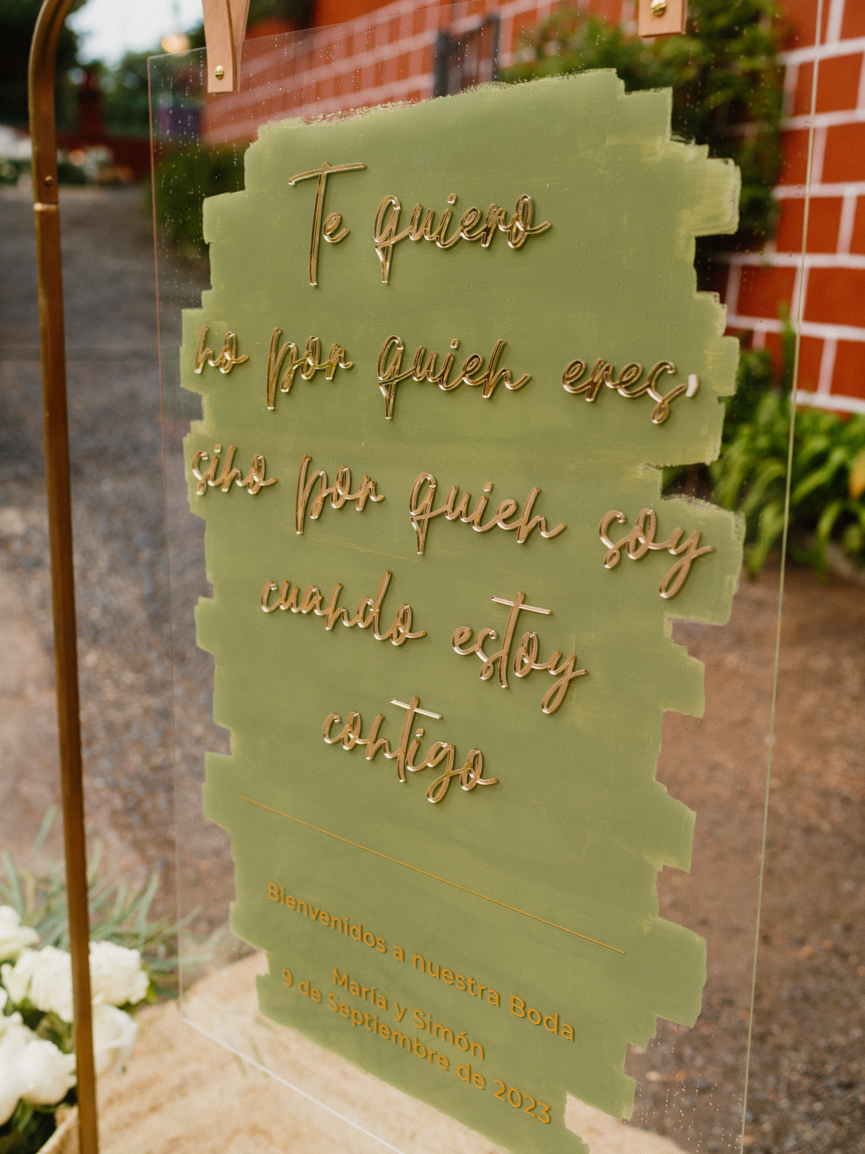 Te quiero
no por quien eres,
sino por quien soy
cuando estoy
contigo
Bienvenidos a nuestra Boda
María y Simón
9 de Septiembre de 2023